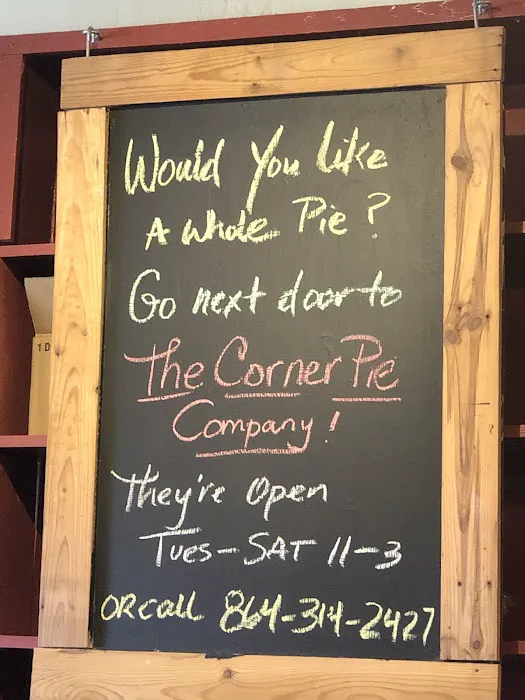 Would You like
A whole Pie?
Go next door to
The Corner Pie
Company!
They're Open
Tues-SAT 11-3
OR call 864-314-2427
1D